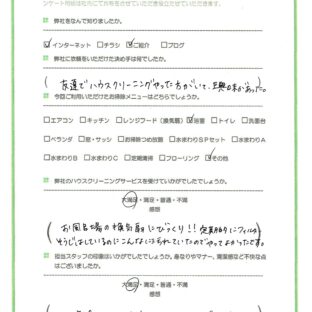 ンケート用紙は社内にてお客様をさせていただき役立たせていただきます。
弊社をなんで知りましたか。
☑インターネット □チラシ ☑ご紹介 □ブログ
弊社に依頼をいただけた決め手は何でしたか。
(友達でハウスクリーニングやった方がいて、興味があった。)
今回ご利用いただけたお掃除メニューはどちらでしょうか。
□エアコン □キッチン □レンジフード(換気扇) ☑浴室 □トイレ □洗面台
□ベランダ □窓・サッシ □お掃除つめ放題 □水まわりSPセット □水まわりA
□水まわりB □水まわりC □定期清掃 □フローリング ☑その他
弊社のハウスクリーニングサービスを受けていかがでしたでしょうか。
大満足・満足・普通・不満
感想
(お風呂場の換気扇にびっくり!!定期的にフィルター
そうじはしているのにこんなに汚れていたのでやってよかったです。)
担当スタッフの印象はいかがでしたでしょうか。身なりやマナー、清潔感など不快な点
はございましたか。
大満足・満足・普通・不満
感想